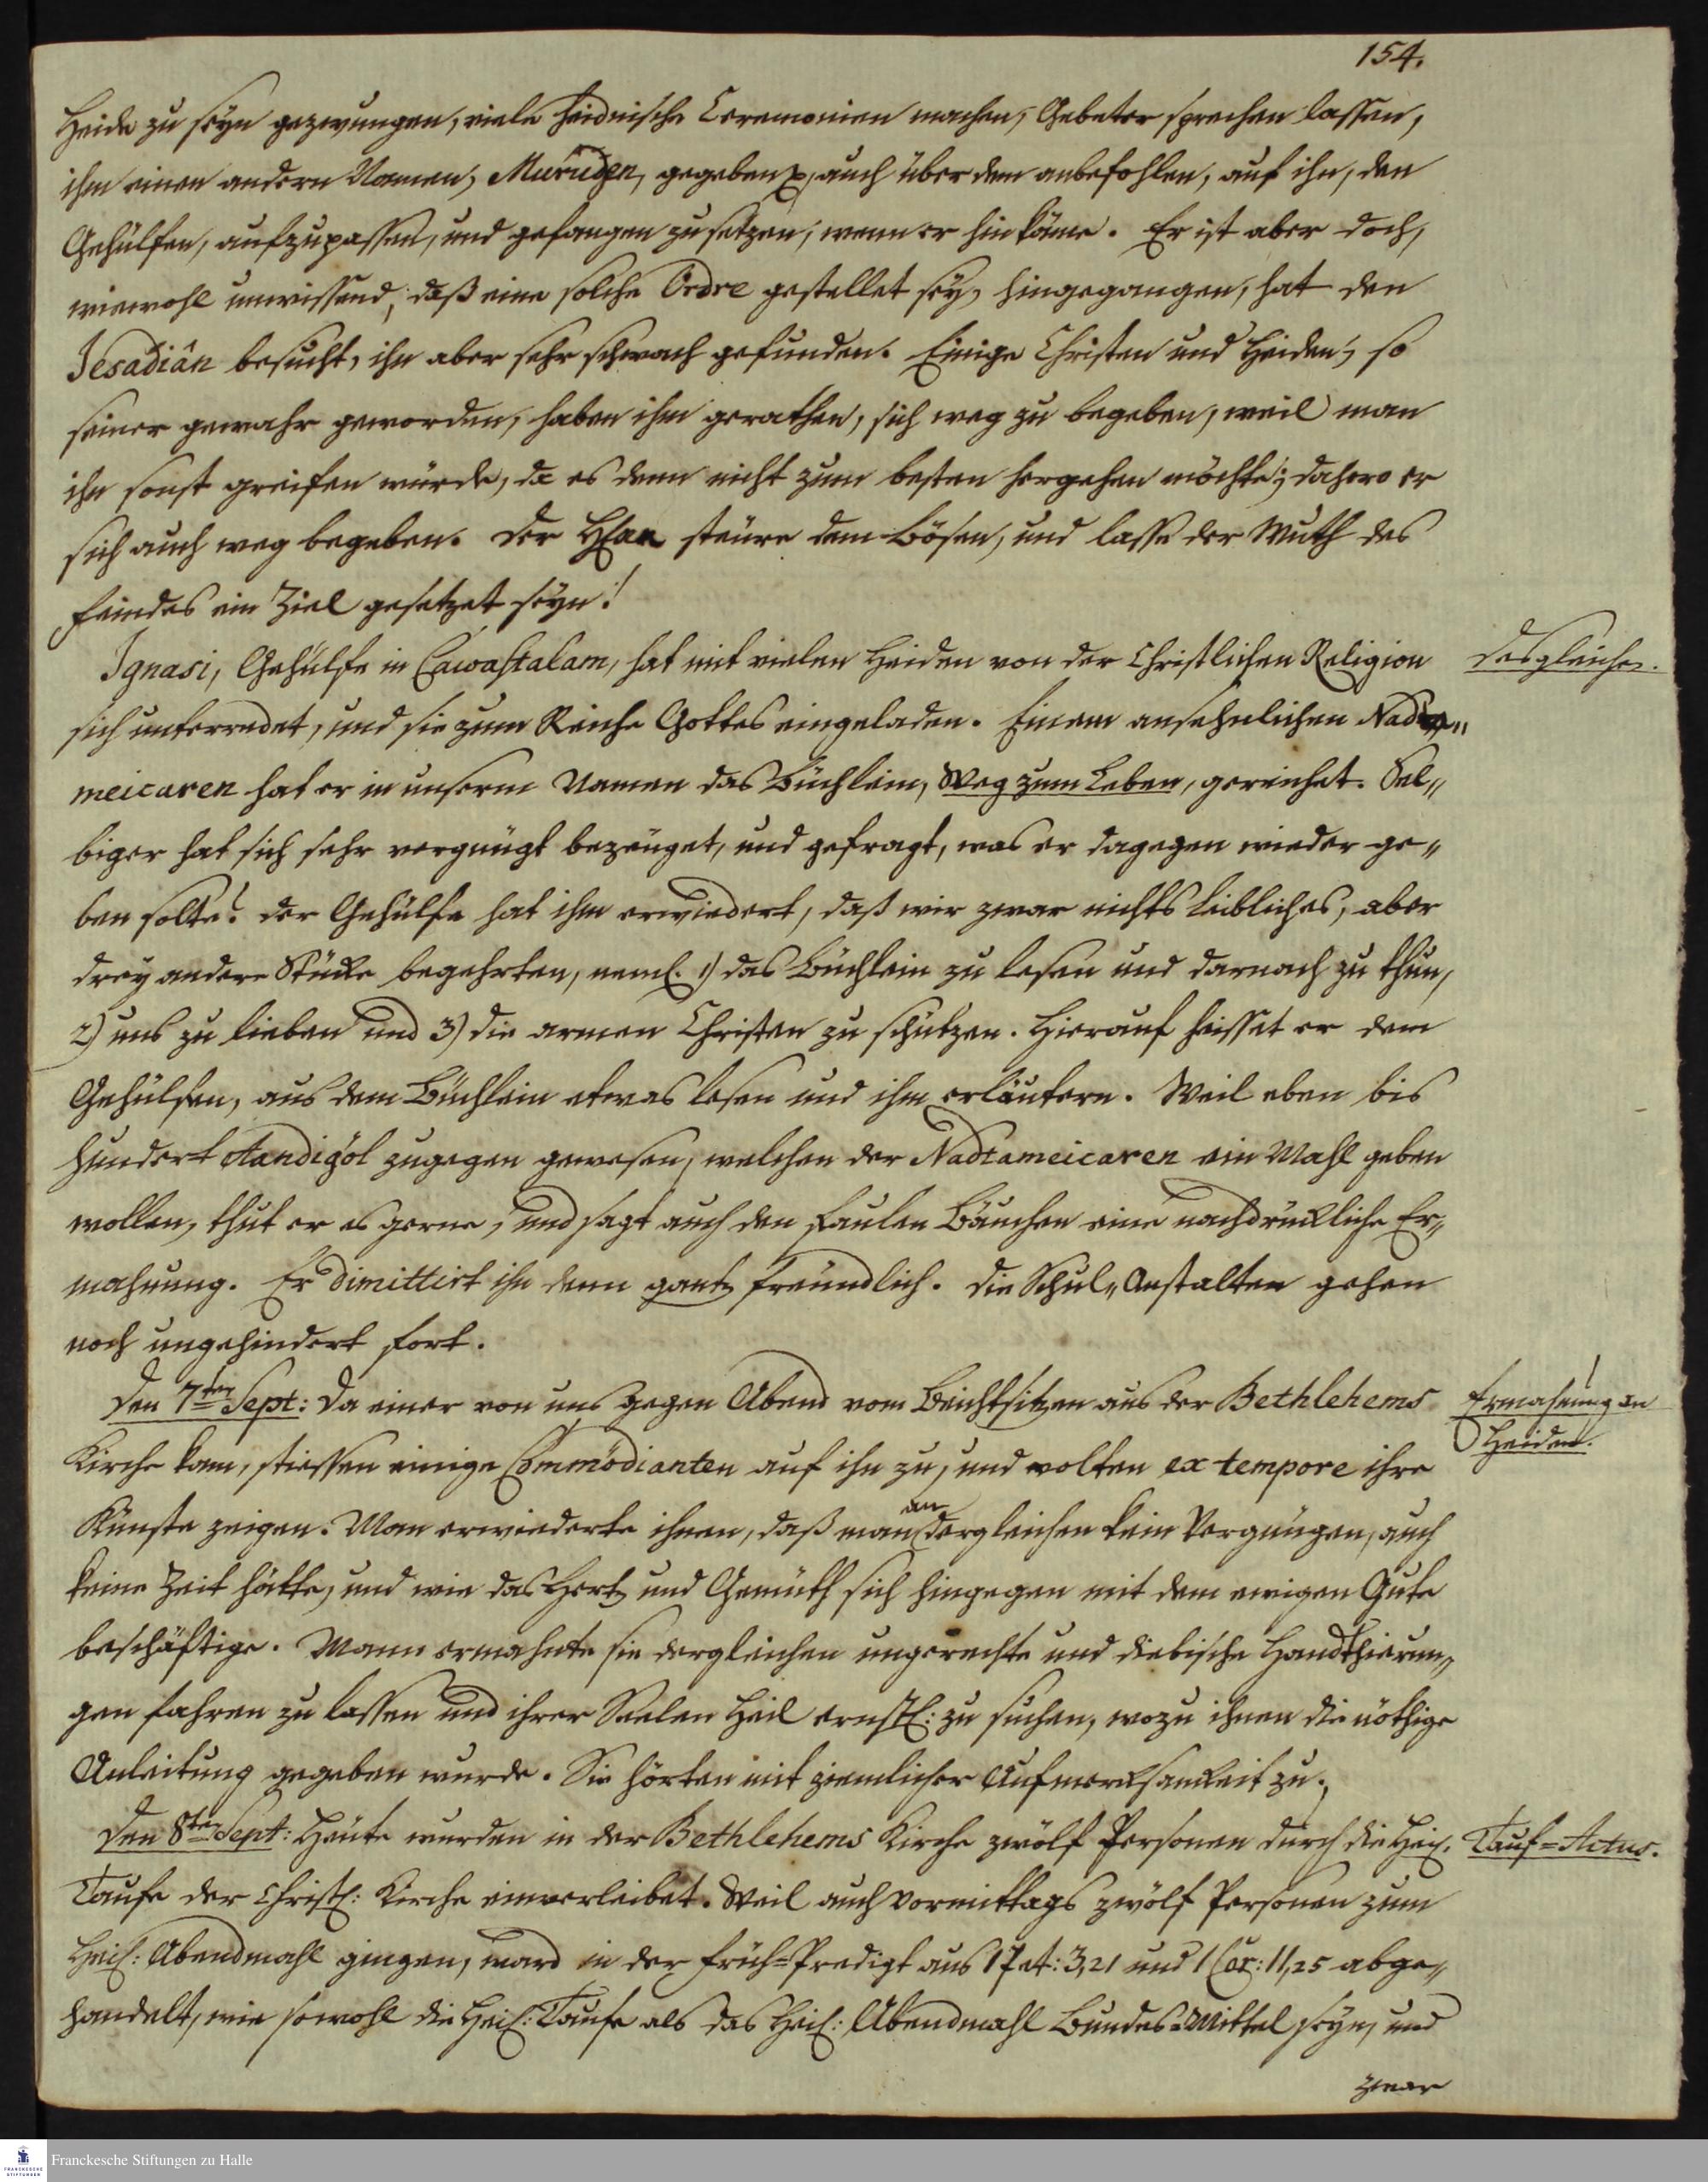 154.
Heide zu seyn gezwungen, viele heidnische Ceremonien machen, Gebeter sprechen lassen,
ihm einen andern Namen, Murugen, gegeben, auch über dem anbefohlen, auf ihn, den
Gehülfen, aufzupassen, und gefangen zu setzen, wenn er hinkäme. Er ist aber doch,
wiewohl unwissend, daß eine solche Ordre gestellet sey, hingegangen, hat den
Jesadiân besucht, ihn aber sehr schwach gefunden. Einige Christen und Heiden, so
seiner gewahr geworden, haben ihm gerathen, sich weg zu begeben, weil man
ihn sonst greifen würde, da es denn nicht zum besten hergehen möchte; dahero er
sich auch weg begeben. Der HErr steure dem Bösen, und lasse der Wuth des
Feindes ein Ziel gesetzet seyn!
Ignasi, Gehülfe in Cawastalam, hat mit vielen Heiden von der Christlichen Religion
desgleichen.
sich unterredet, und sie zum Reiche Gottes eingeladen. Einem ansehnlichen Nadta„
meicaren hat er in unserm Namen das Büchlein, Weg zum Leben, gereichet. Sel„
biger hat sich sehr vergnügt bezeuget, und gefragt, was er dagegen wieder ge„
ben solte? Der Gehülfe hat ihm erwiedert, daß wir zwar nichts leibliches, aber
drey andere Stücke begehrten, neml. 1) das Büchlein zu lesen und darnach zu thun,
2) uns zu lieben und 3) die armen Christen zu schützen. Hierauf heisset er dem
Gehülfen, aus dem Büchlein etwas lesen und ihm erläutern. Weil eben bis
hundert Aandigöl zugegen gewesen, welchen der Nadtameicaren ein Mahl geben
wollen, thut er es gerne, und sagt auch den faulen Bäuchen eine nachdrückliche Er„
mahnung. Er dimittirt ihn denn gantz freundlich. Die Schul„Anstalten gehen
noch ungehindert fort.
Den 7ten Sept: Da einer von uns gegen Abend vom Beichtsitzen aus der Bethlehems
Ermahnung an
Heiden.
Kirche kam, stiessen einige Commödianten auf ihn zu, und wolten ex tempore ihre
Künste zeigen. Man erwiederte ihnen, daß man an dergleichen kein Vergnügen, auch
keine Zeit hätte, und wie das Hertz und Gemüth sich hingegen mit dem ewigen Gute
beschäftige. Mann ermahnte sie dergleichen ungerechte und diebische Handthierun„
gen fahren zu lassen und ihrer Seelen Heil ernstl: zu suchen, wozu ihnen die nöthige
Anleitung gegeben wurde. Sie hörten mit ziemlicher Aufmercksamkeit zu.
Den 8ten Sept: Heute wurden in der Bethlehems Kirche zwölf Personen durch die Heil.
Tauf=Actus.
Taufe der Christl: Kirche einverleibet. Weil auch Vormittags zwölf Personen zum
Heil: Abendmahl gingen, ward in der Früh=Predigt aus 1 Pet: 3,21 und 1 Cor: 11,25 abge„
handelt, wie sowohl die Heil: Taufe als das Heil: Abendmahl Bundes=Mittel seyn, und
zwar
Franckesche Stiftungen zu Halle